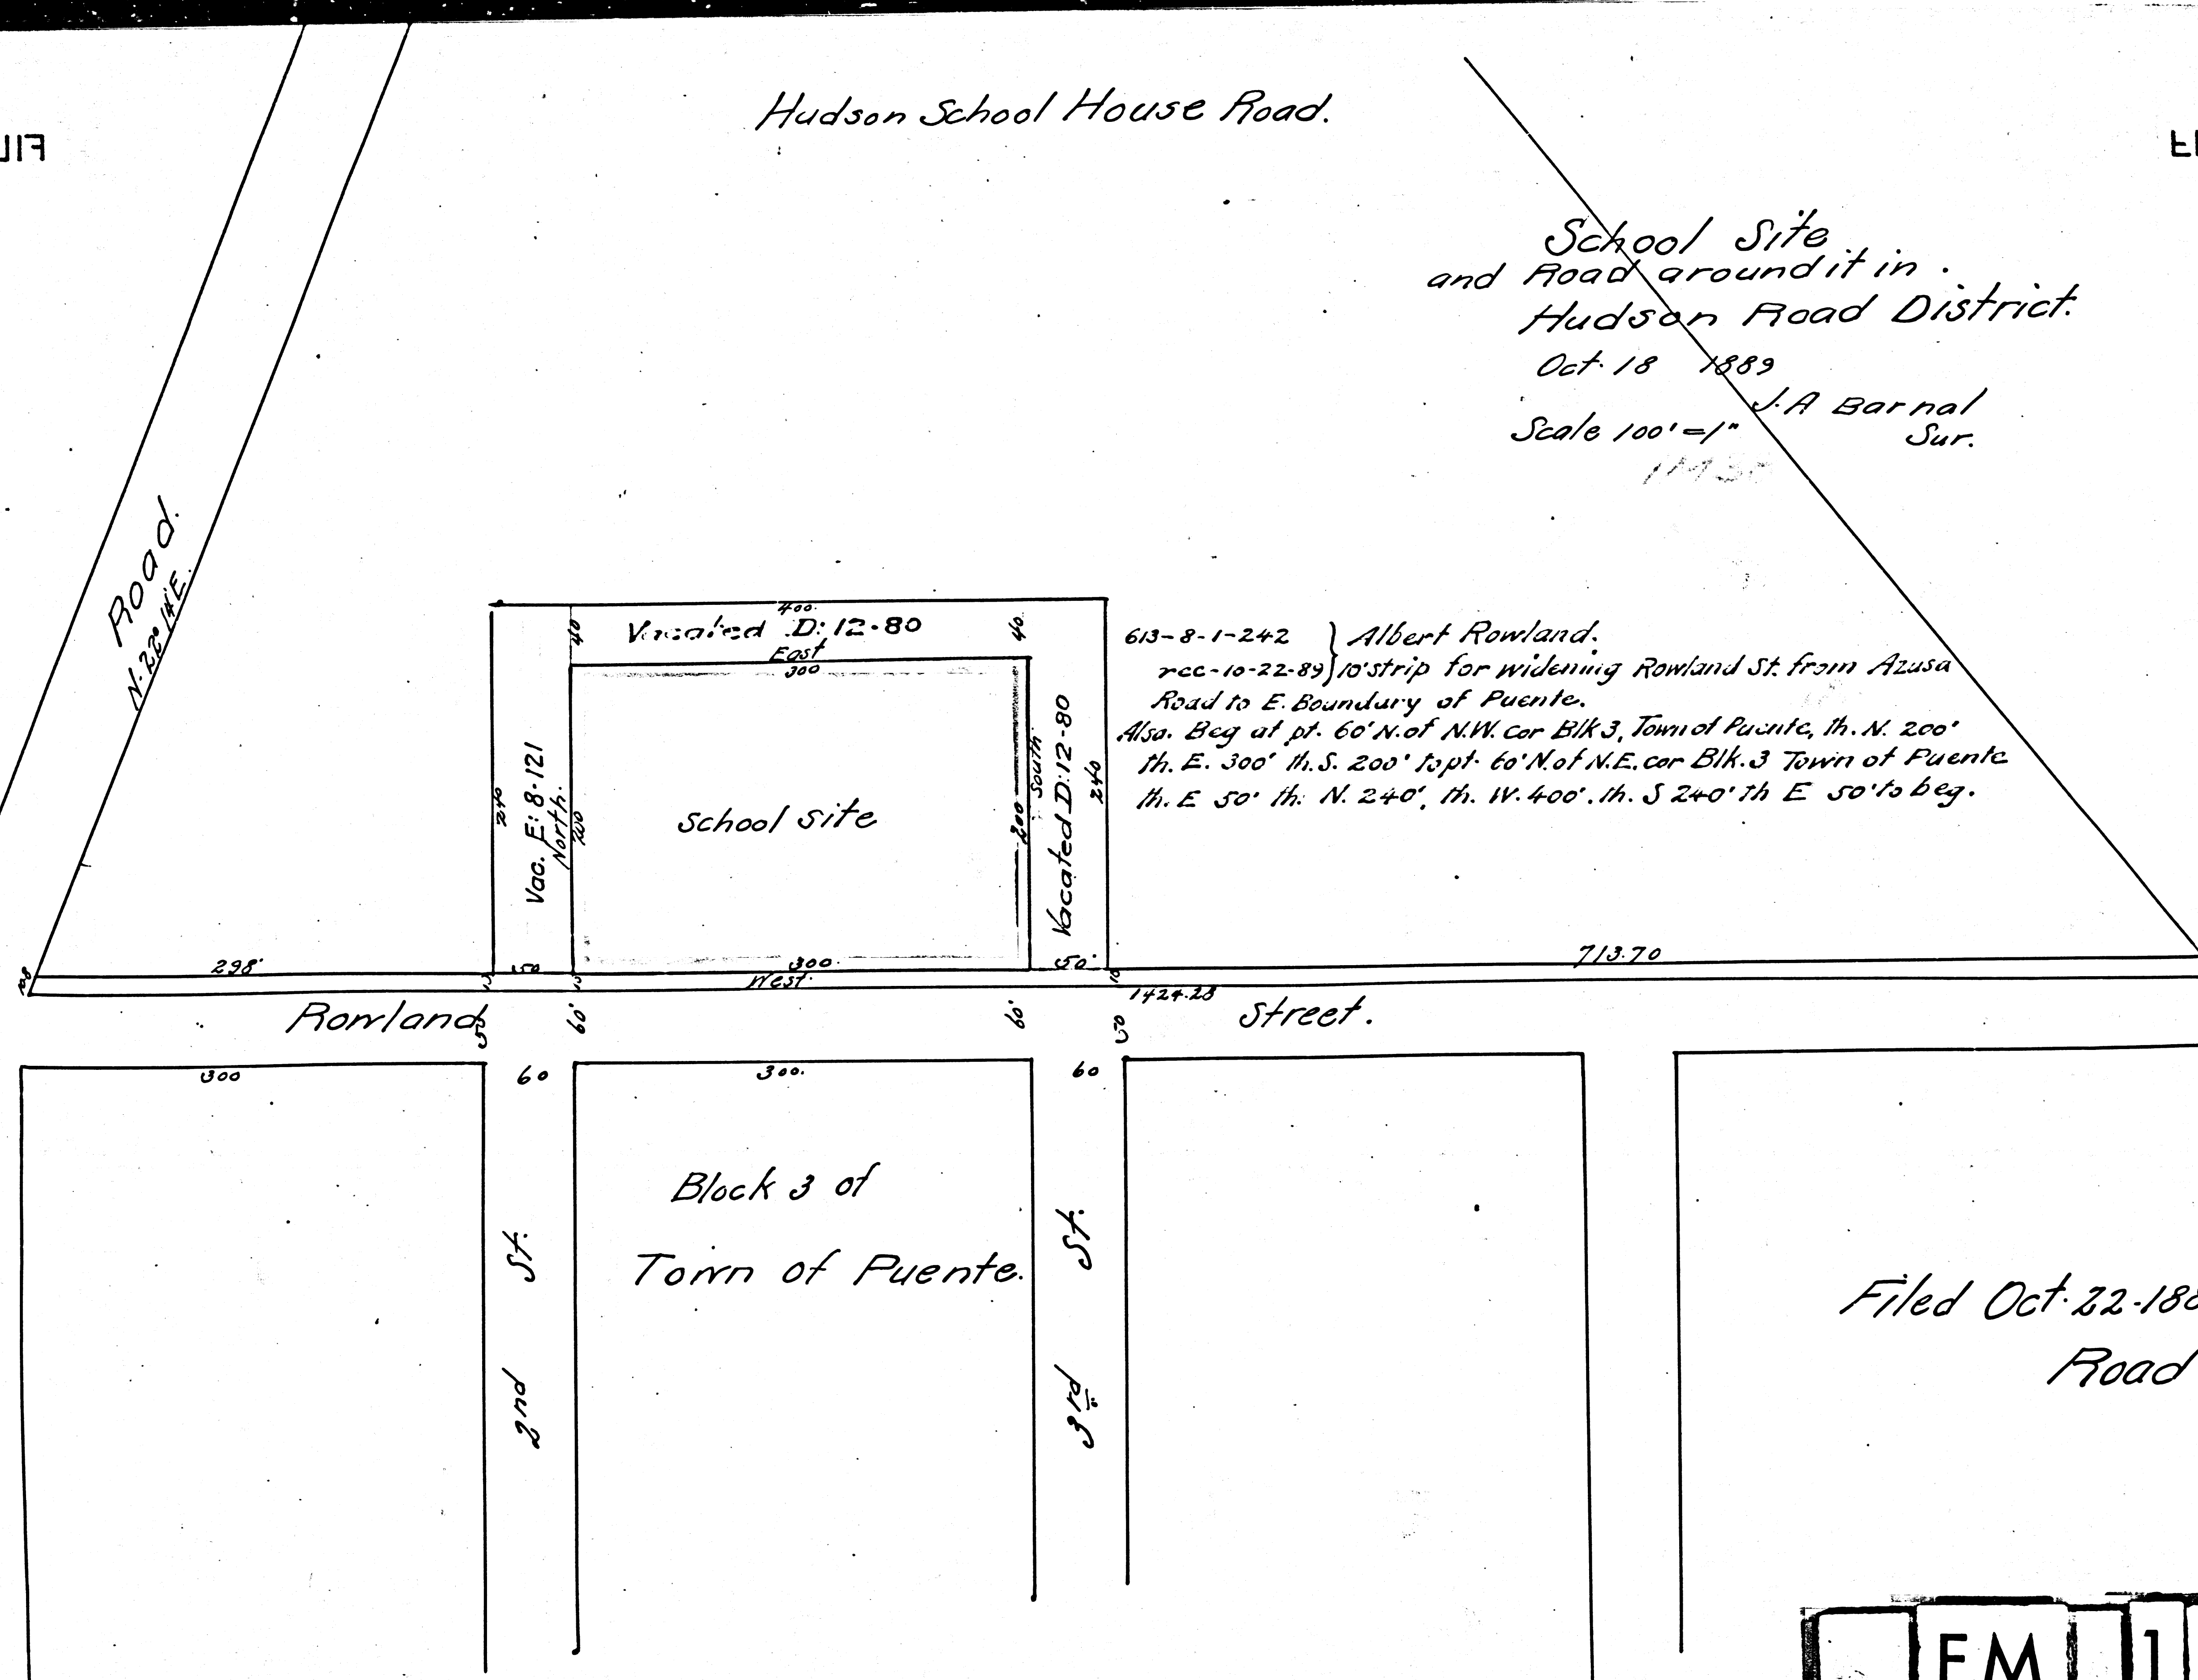 Hudson School House Road.
School Site
and Road around it in
Hudson Road District.
Oct. 18 1889
J. A Barnal
Sur.
Scale 100' = 1"
Road.
N. 22° 14' E.
400.
Vacated D: 12-80
East
300
40
40.
240
Vac. E: 8-121
North.
200
School Site
200
South
Vacated D: 12-80
240
613-8-1-242 } Albert Rowland.
rec-10-22-89 } 10' strip for widening Rowland St. from Azusa
Road to E. Boundary of Puente.
Also. Beg at pt. 60' N. of N.W. cor Blk 3, Town of Puente, th. N. 200'
th. E. 300' th. S. 200' to pt. 60' N. of N.E. cor Blk. 3 Town of Puente
th. E 50' th. N. 240', th. W. 400', th. S 240' th E 50' to beg.
298'
50
300.
50.
713.70
West.
10
1424.28
Rowland Street.
50
60'
60'
50
300
60
300.
60
Block 3 of
Town of Puente.
2nd St.
3rd St.
Filed Oct. 22-188
Road
FM 1